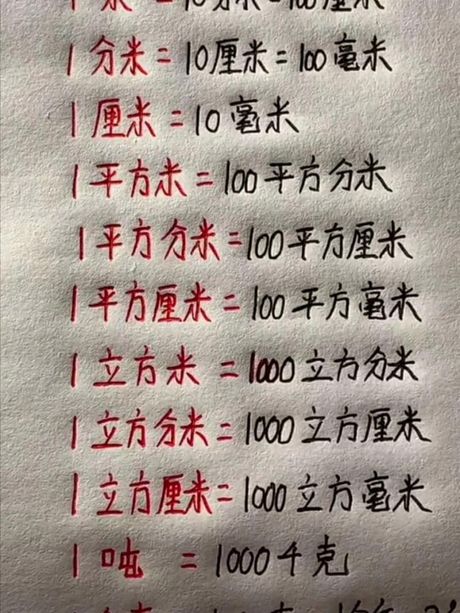 1 米 = 10分米=100厘米
1 分米 = 10厘米=100毫米
1 厘米 = 10毫米
1 平方米 = 100平方分米
1 平方分米=100平方厘米
1 平方厘米=100平方毫米
1 立方米 = 1000立方分米
1 立方分米=1000立方厘米
1 立方厘米=1000立方毫米
1 吨 = 1000千克